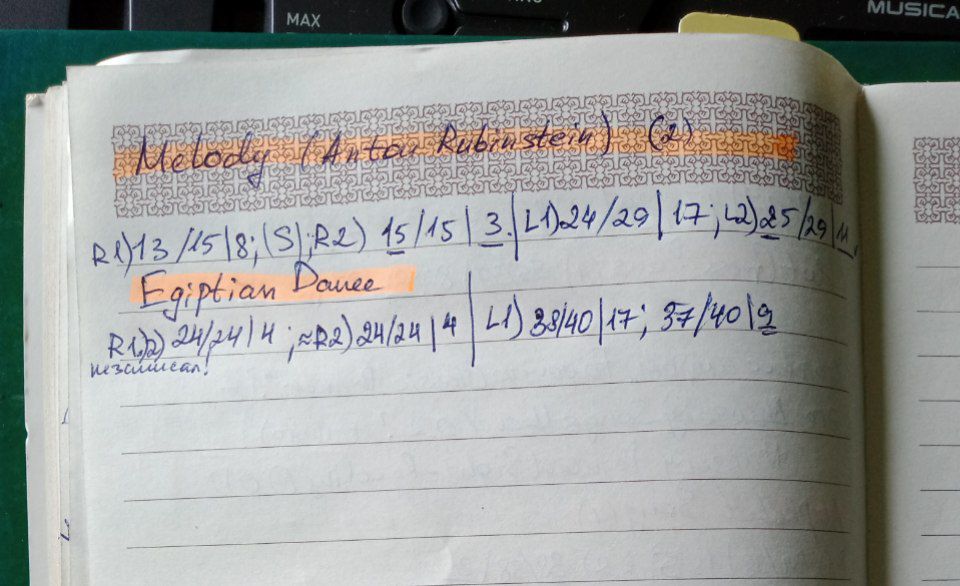 MAX
MUSICA
Melody (Anton Rubinstein) (2)
R1)13/15|8;(S);R2) 15/15|3.|L1)24/29|17;L2)25/29|11.
Egiptian Dance
R1)2) 24/24|4;≈R2)24/24|4|L1)38/40|17; 37/40|9